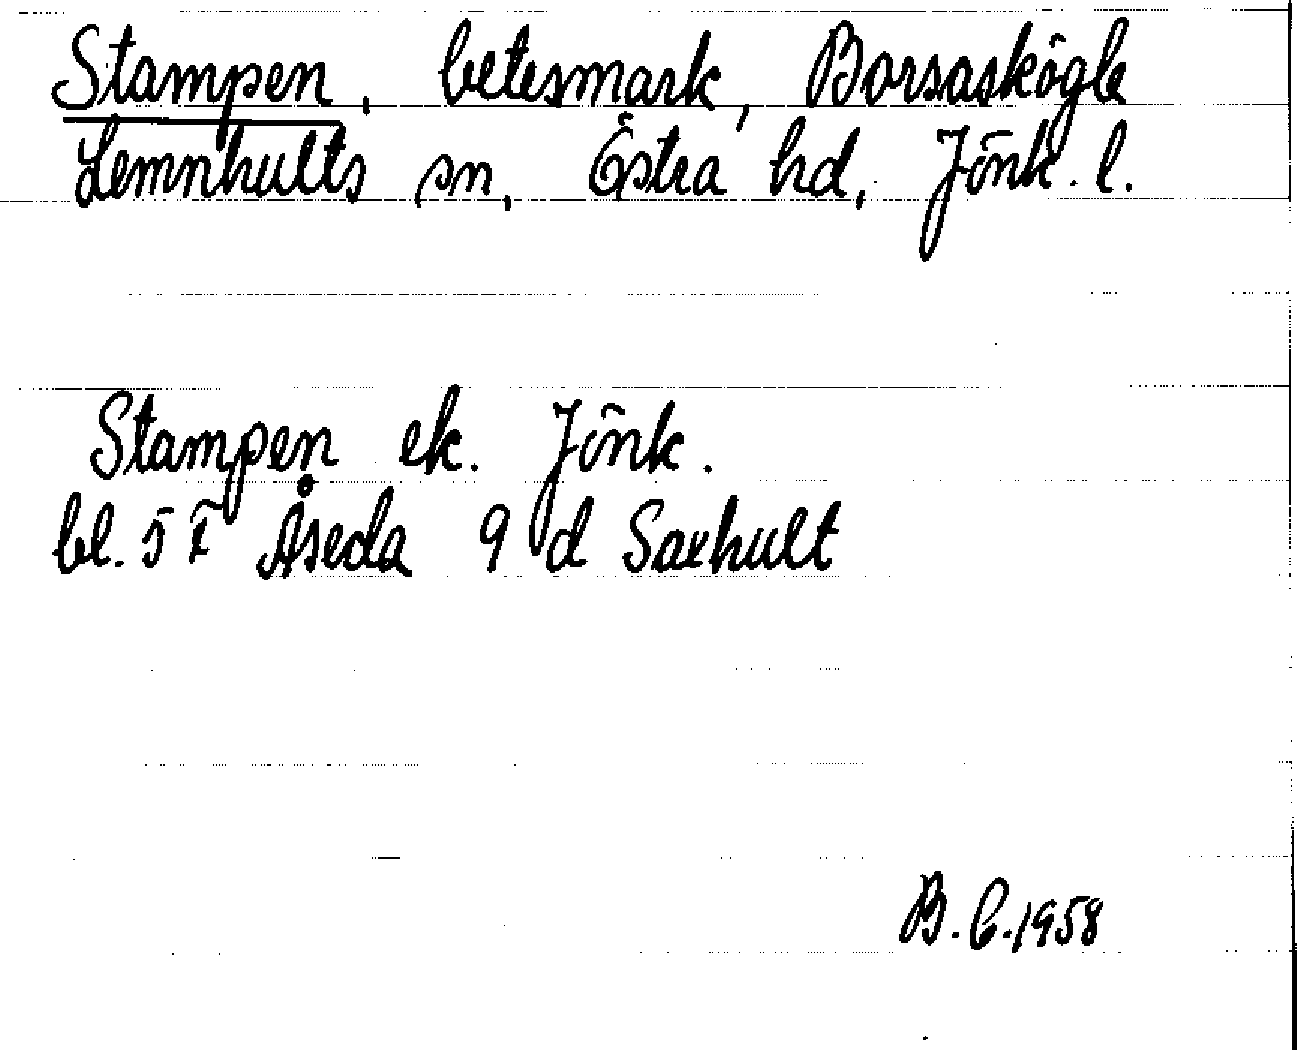 Stampen, betesmark, Borsaskögle
Lemnhults sn, Östra hd, Jönk. l.
Stampen ek. Jönk.
bl. 5 F Åseda 9 d Saxhult
B. C. 1958